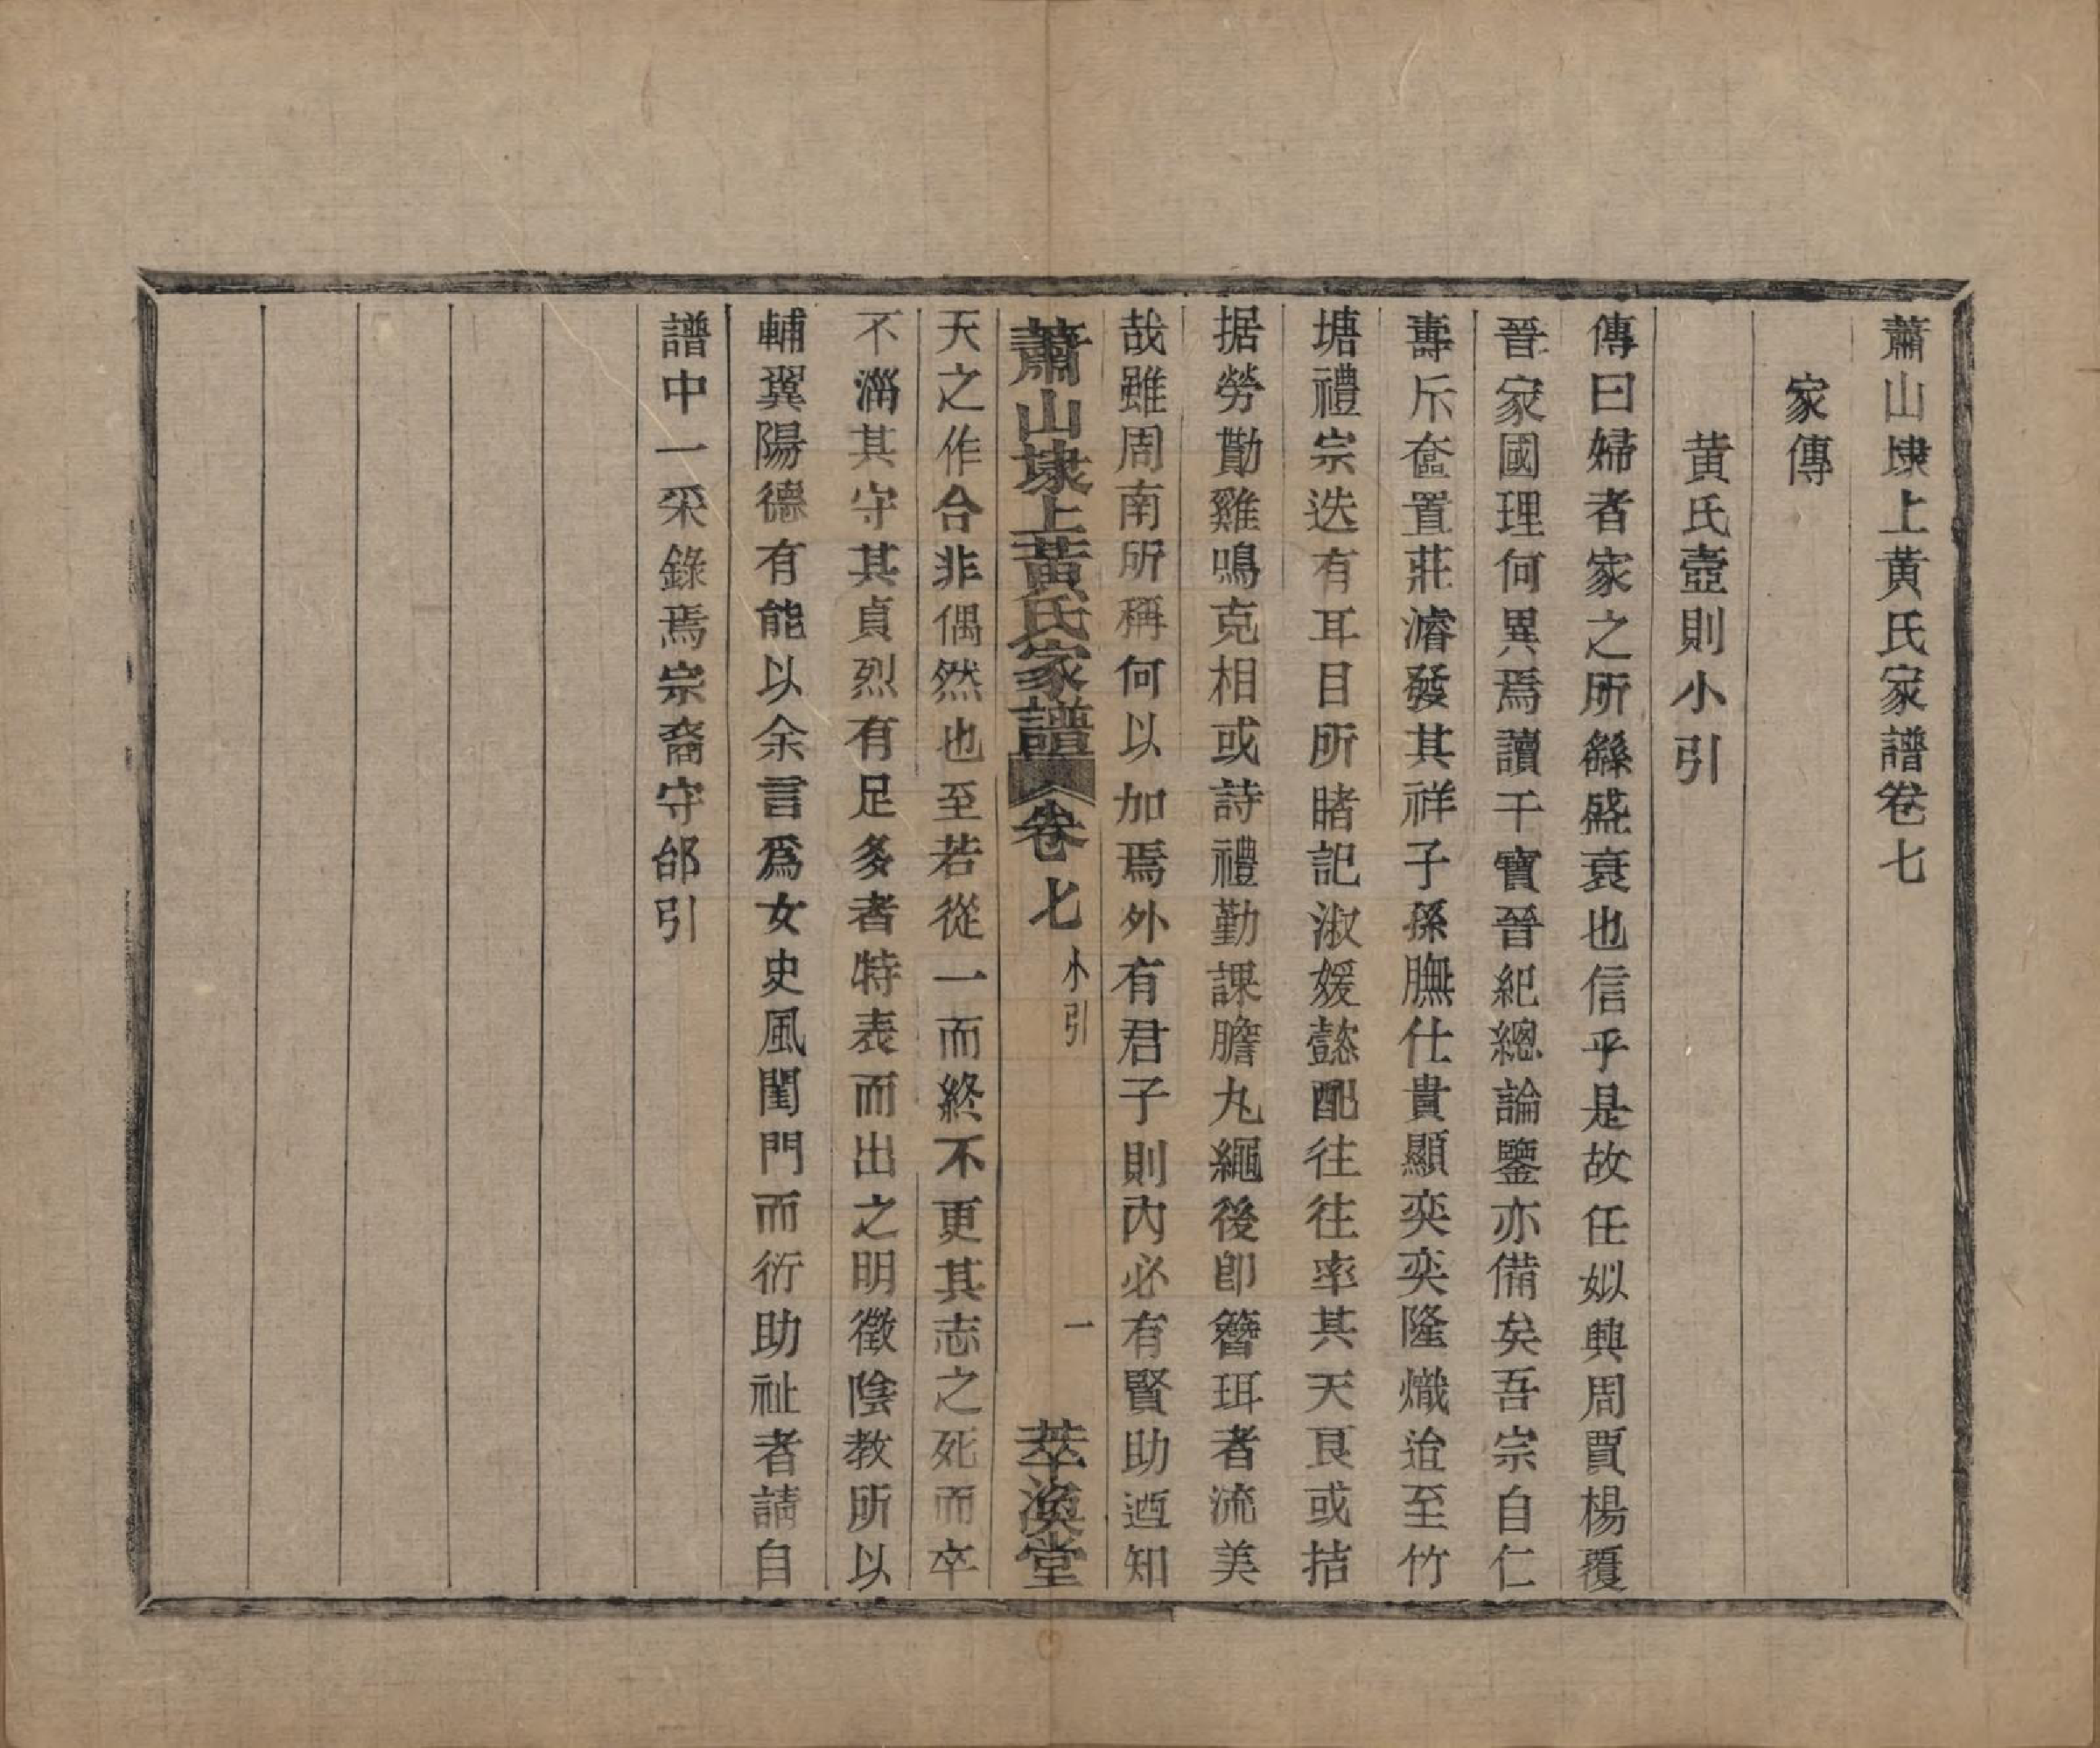 蕭山埭上黃氏家譜卷七
家傳
黃氏壼則小引
傳曰婦者家之所繇盛衰也信乎是故任姒興周賈楊覆
晉家國理何異焉讀干寶晉紀總論鑒亦備矣吾宗自仁
壽斥奩置莊濬發其祥子孫膴仕貴顯奕奕隆熾迨至竹
塘禮宗迭有耳目所睹記淑媛懿配往往率其天良或拮
据勞勩雞鳴克相或詩禮勤課膽丸繩後卽簪珥者流美
哉雖周南所稱何以加焉外有君子則內必有賢助迺知
蕭山埭上黃氏家譜 卷七 小引 一 萃渙堂
天之作合非偶然也至若從一而終不更其志之死而卒
不淄其守其貞烈有足多者特表而出之明徵陰教所以
輔翼陽德有能以余言爲女史風閨門而衍助祉者請自
譜中一采錄焉宗裔守邰引